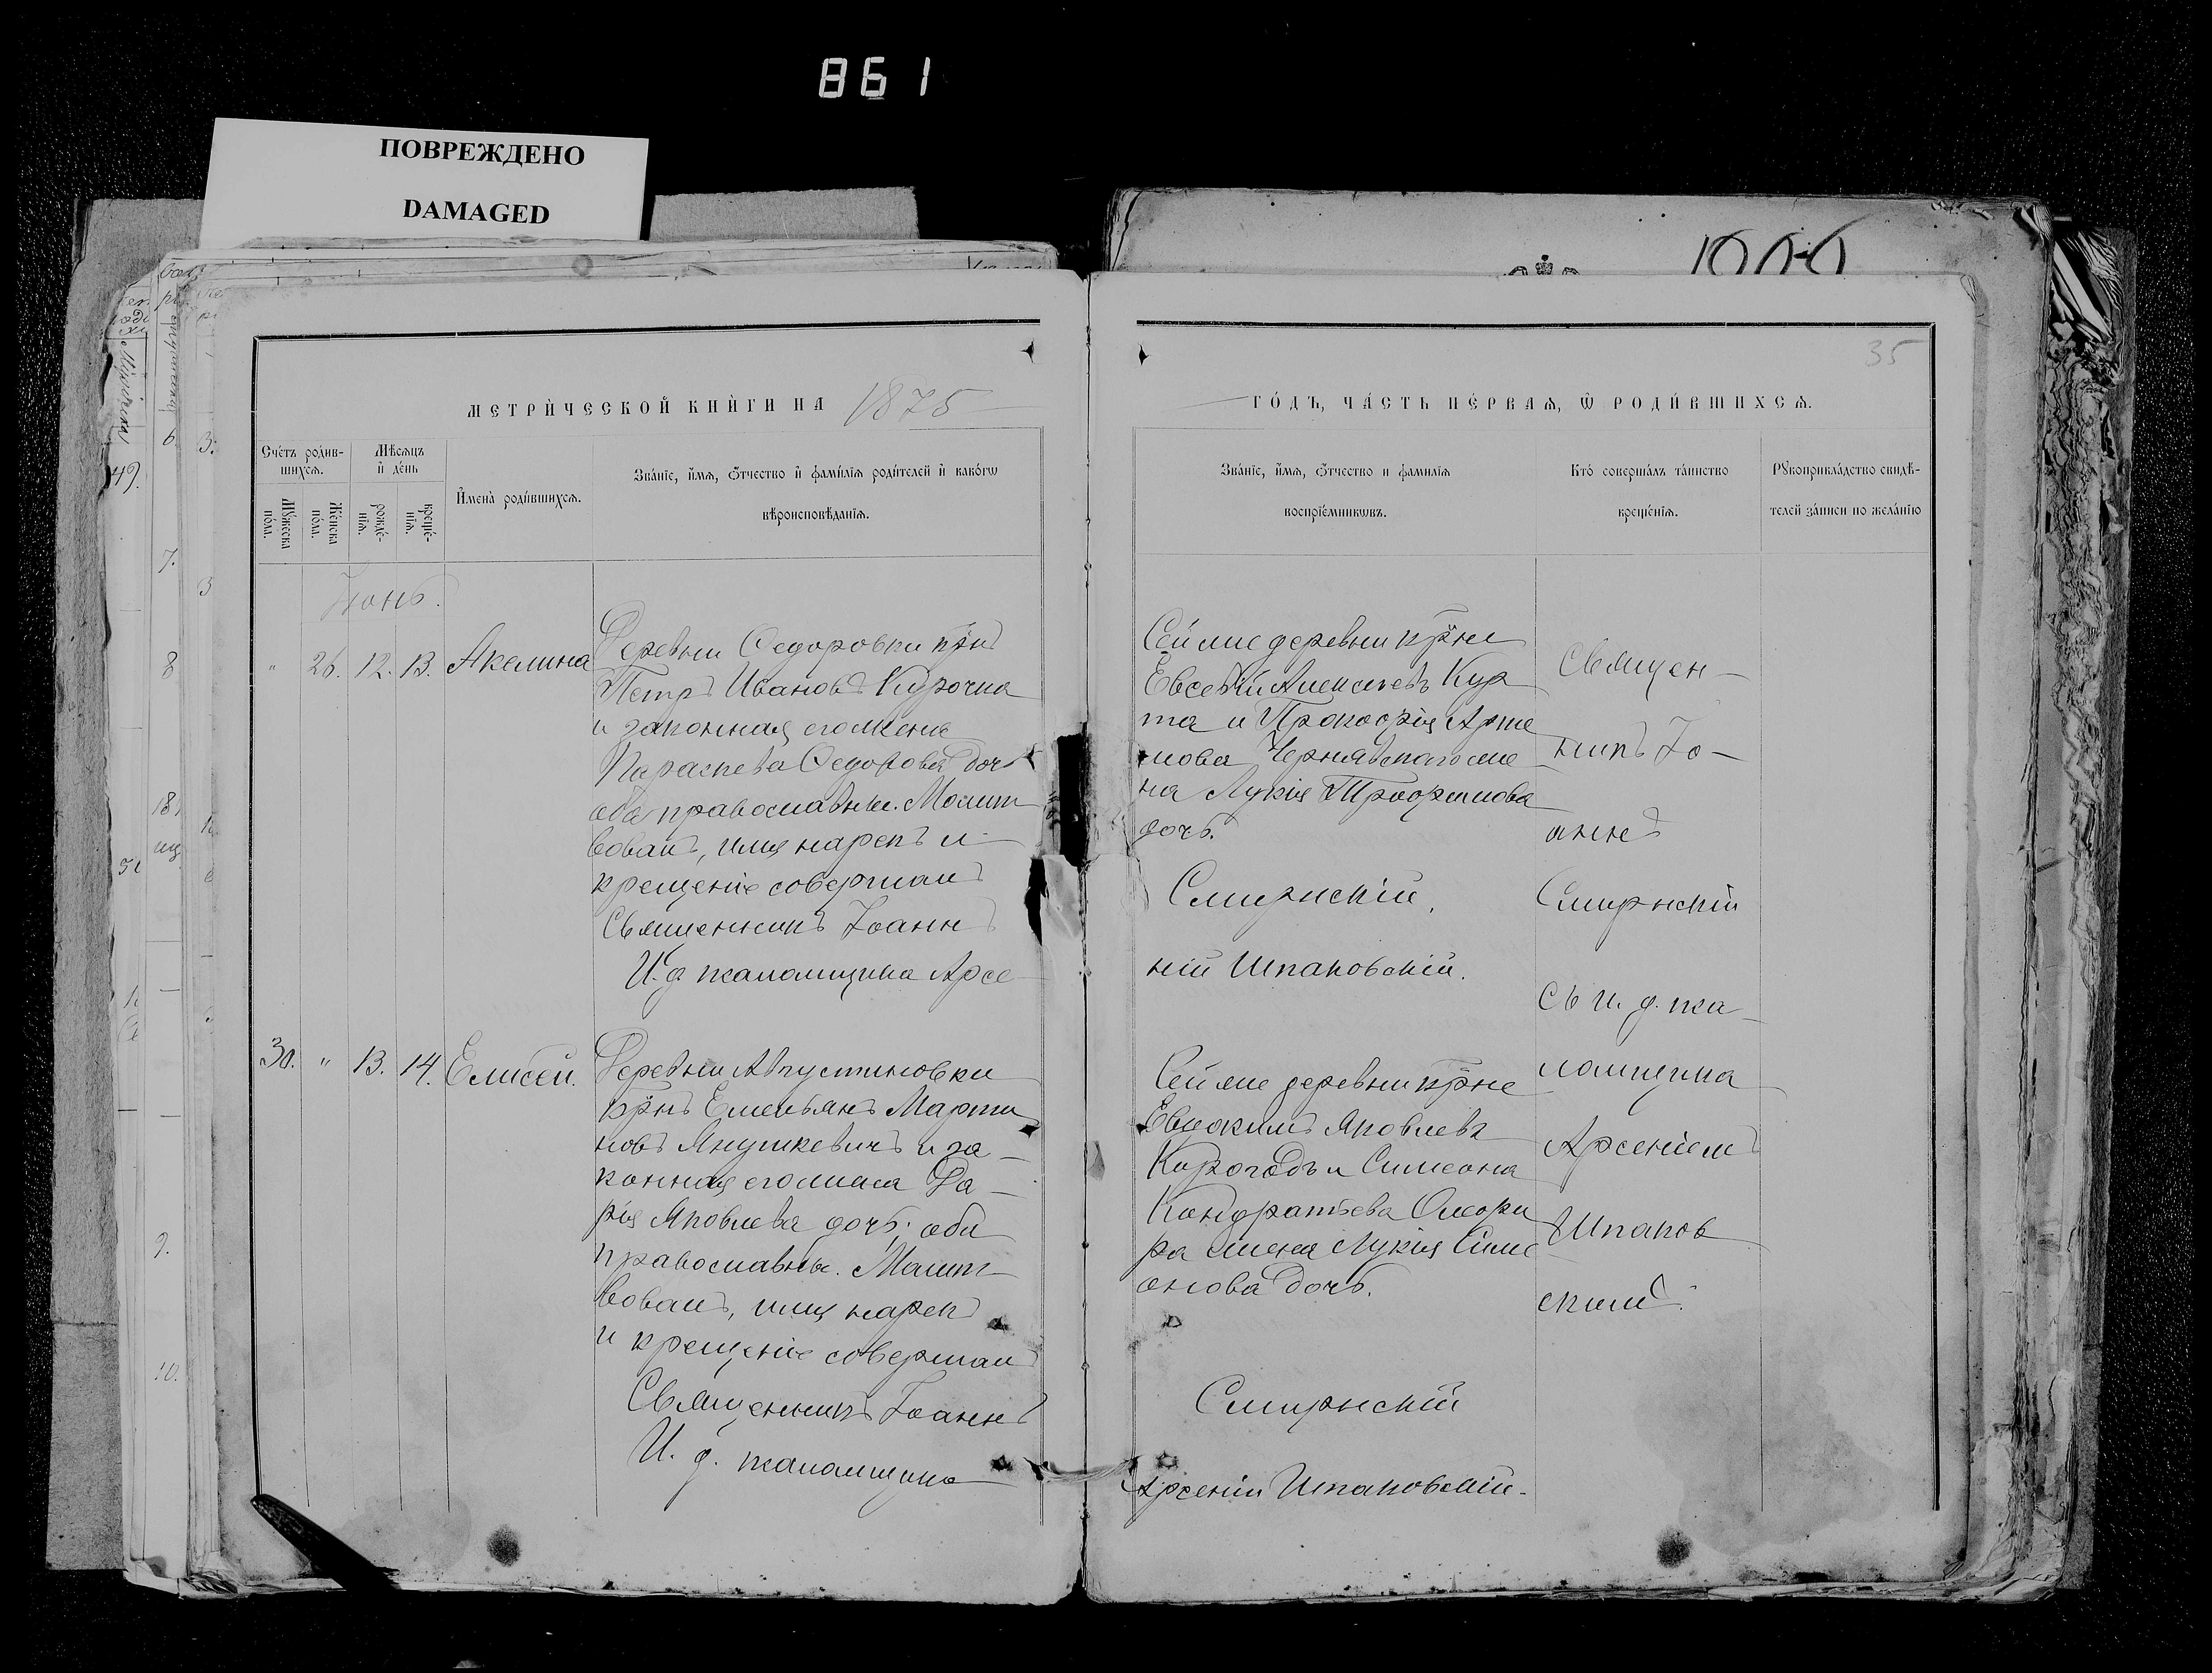 861
ПОВРЕЖДЕНО
DAMAGED
35
МЕТРИ́ЧЕСКОЙ КНИ́ГИ НА 1875
ГО́ДЪ, ЧА́СТЬ ПЕ́РВАѦ, Ѡ РОДИ́ВШИХСѦ.
Сче́тъ роди́в-
шихсѧ.
Мꙋжеска по́ла.
Же́нска по́ла.
Мѣ́сѧцъ
и де́нь
рожде́-
нїѧ.
креще́-
нїѧ.
Имена̀ роди́вшихсѧ.
Зва́нїе, и́мѧ, о́тчество и фами́лїѧ роди́телей и како́гѡ
вѣроисповѣ́данїѧ.
Зва́нїе, и́мѧ, о́тчество и фами́лїѧ
воспрїе́мникѡвъ.
Кто̀ соверша́лъ та́инство
креще́нїѧ.
Рꙋкоприкла́дство свидѣ́-
телей за́писи по жела́нїю
Іюнь.
" 26. 12. 13. Акелина
Деревни Ѳедоровки крн̃ъ
Петръ Ивановъ Курочка
и законная его жена
Параскева Ѳедорова дочь
оба православные. Молит
вовалъ, имя нарекъ и
крещеніе совершалъ
Священникъ Іоаннъ
И. д. псаломщика Арсе
Сей же деревни крн̃е
Евсевій Алексѣевъ Кур
та и Прокофія Арте
мова Чернявскаго же
на Лукія Трофимова
дочь.
Смирнскій.
ній Шпаковскій.
Священ-
никъ Іо-
аннъ
Смирнскій
съ и. д. пса-
ломщика
Арсеніемъ
Шпаков
скимъ.
30. " 13. 14. Елисей.
Деревни Августиновки
крн̃ъ Емельянъ Марти
новъ Янушкевичъ и за-
конная его жена Да-
рія Яковлева дочь; оба
православные. Молит-
вовалъ, имя нарекъ
и крещеніе совершалъ
Священникъ Іоаннъ
И. д. псаломщика
Сей же деревни крн̃е
Евдокимъ Яковлевъ
Корогодъ и Симеона
Кондратьева
жена Лукія Симе
онова дочь.
Смирнскій
Арсеній Шпаковскій.